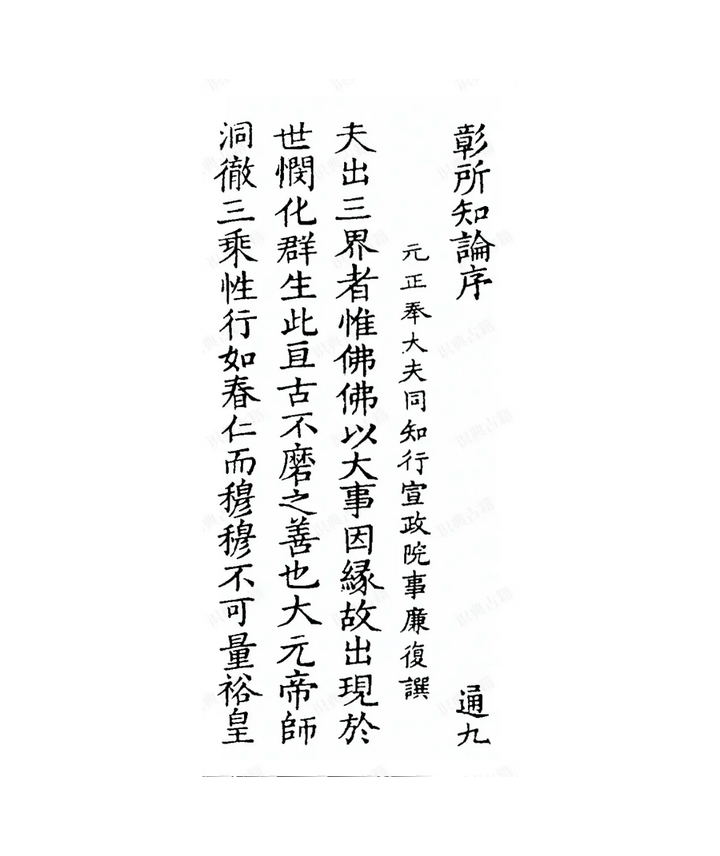 彰所知論序 通九
元正奉大夫同知行宣政院事廉復譔
夫出三界者惟佛佛以大事因緣故出現於
世憫化群生此亘古不磨之善也大元帝師
洞徹三乘性行如春仁而穆穆不可量裕皇